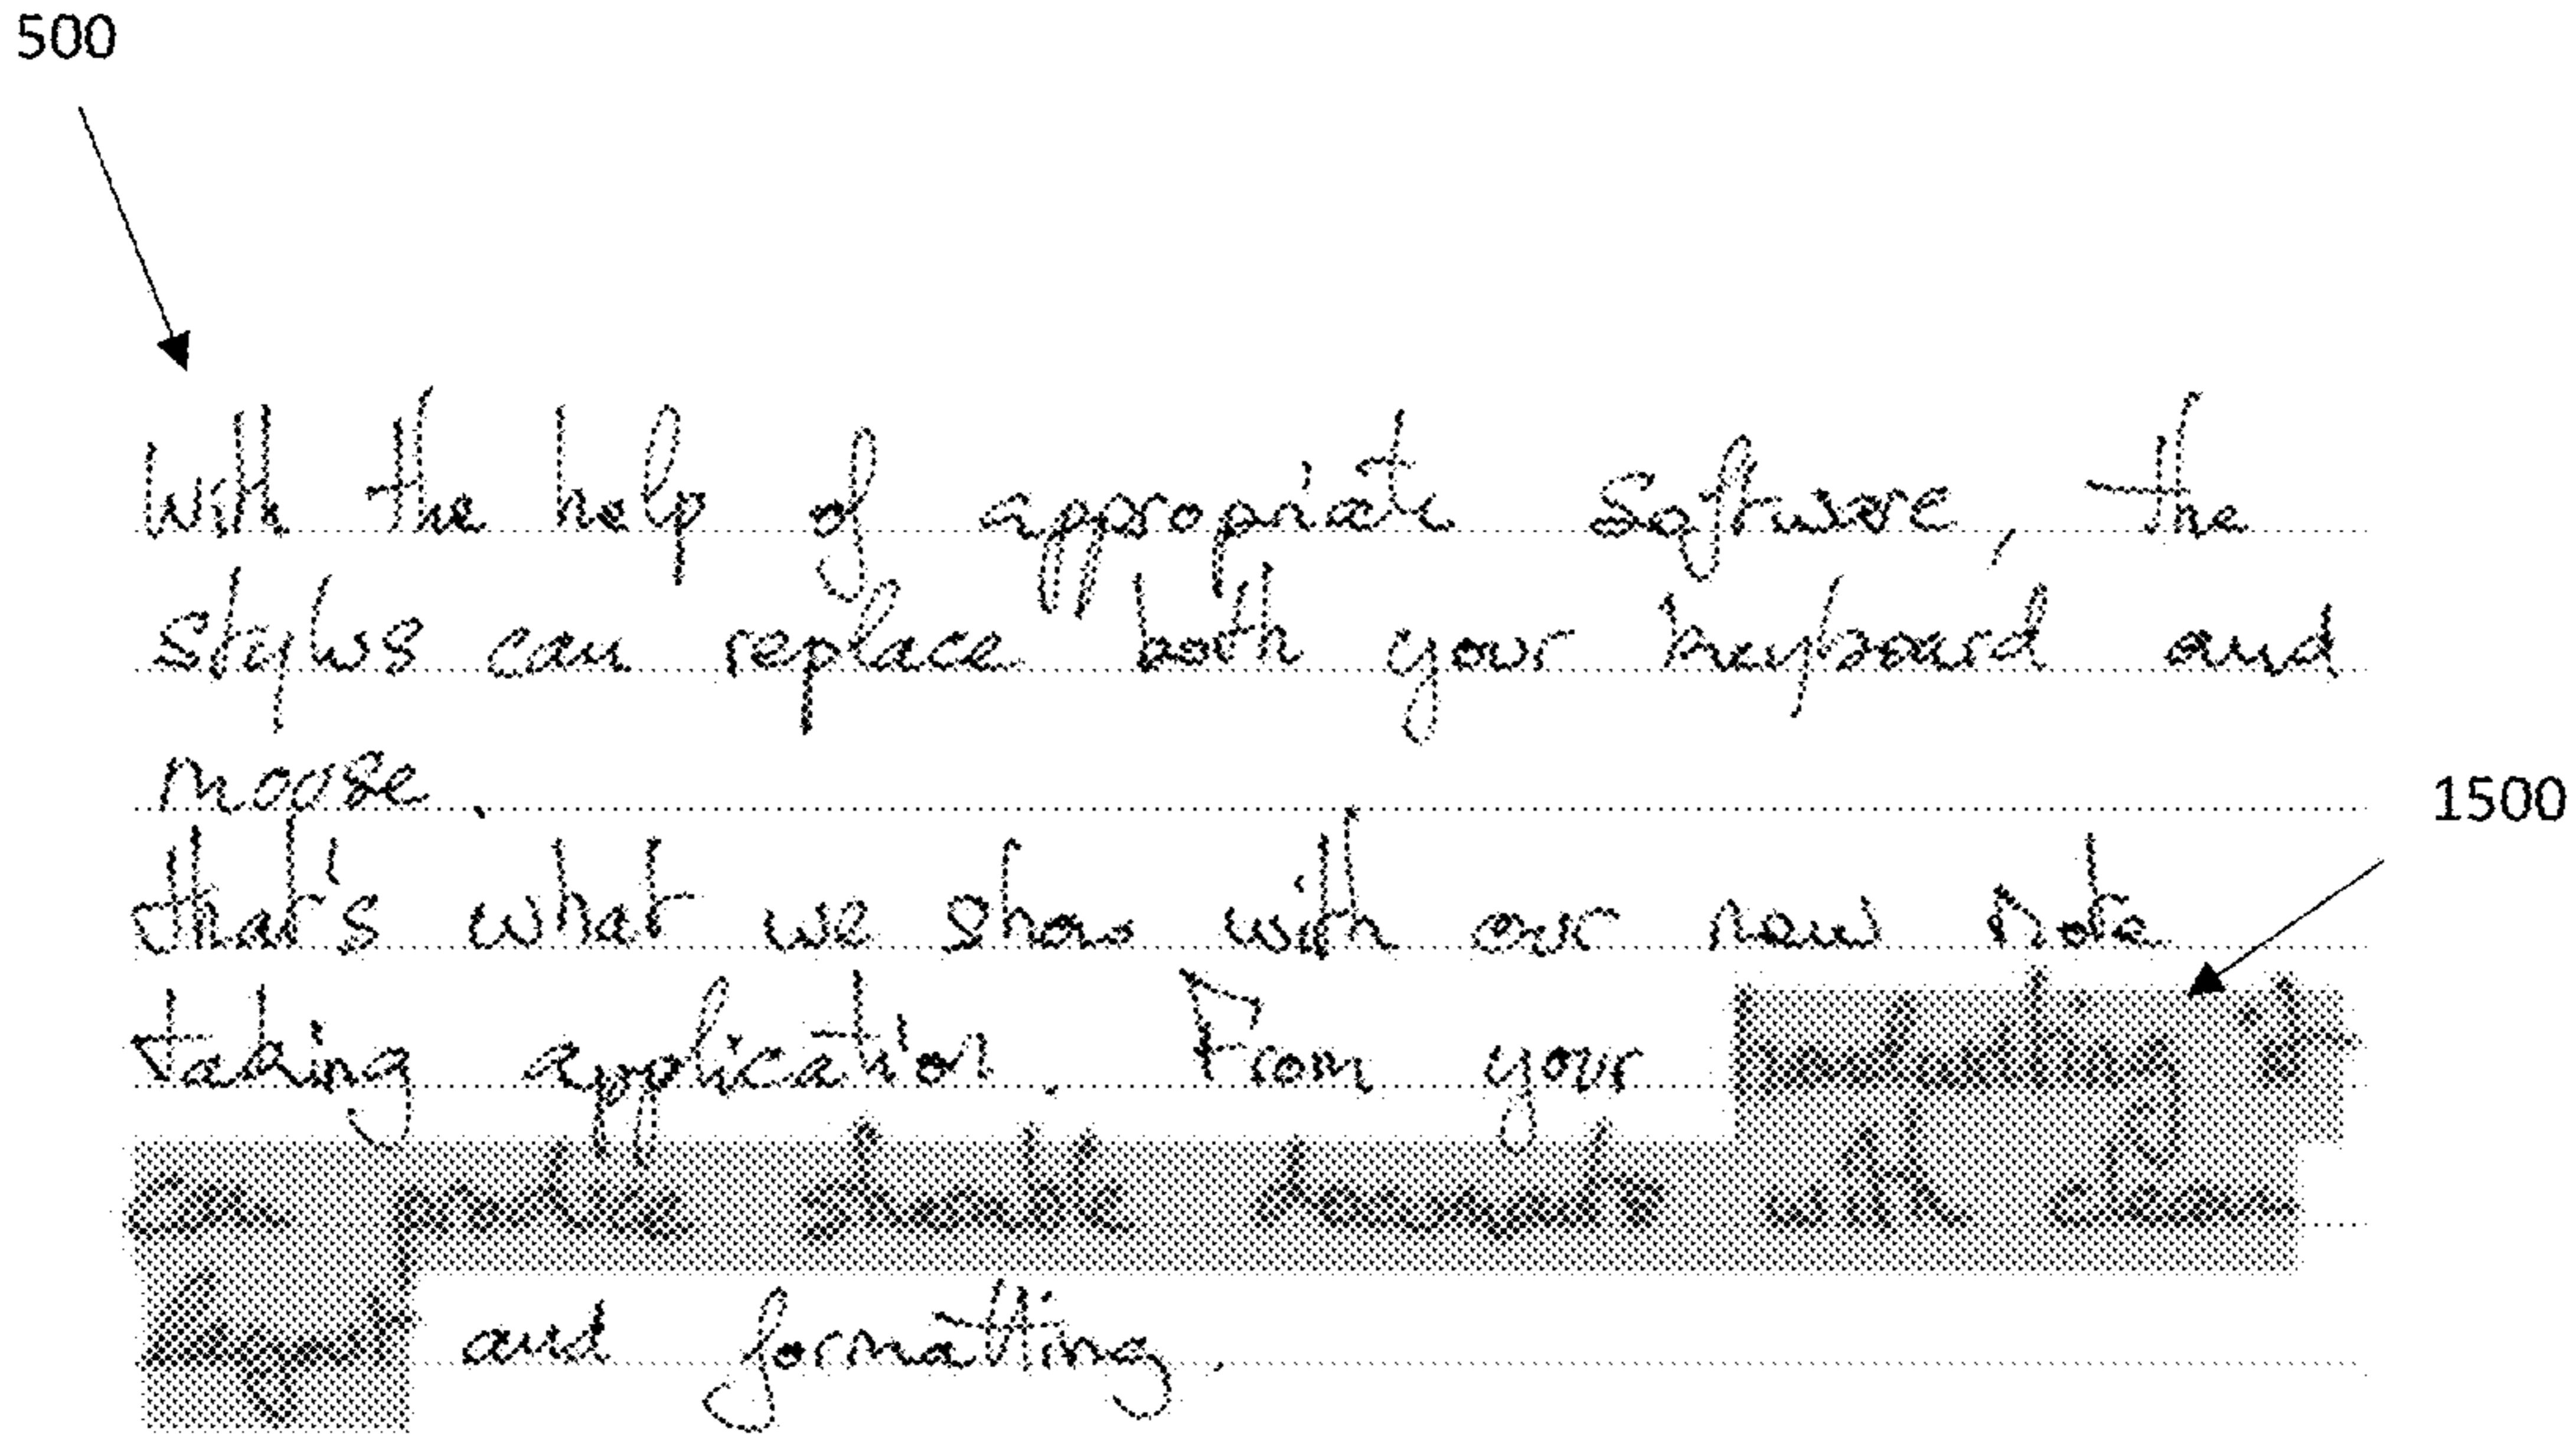 500
With the help of appropriate Software, the
stylus can replace both your keyboard and
moose.
1500
that's what we show with our new note
taking application. From your handwriting it
can produce sharable documents with clean
layout and formatting.